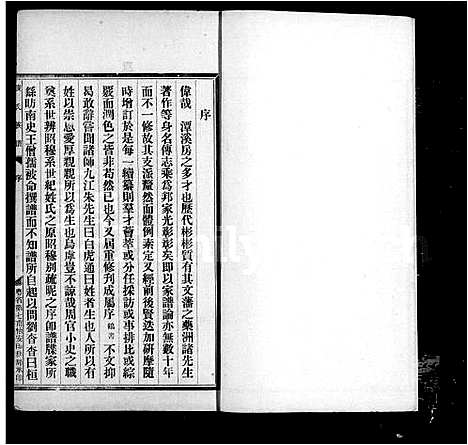 序
偉哉　潭溪房之多才也歷代彬彬質有其文藩之藥洲諸先生
著作等身名傳志乘爲邦家光彰彰矣卽以家譜論亦無數十年
而不一修故其支派釐然而體例素定又經前後賢迭加研摩隨
時增訂於是每一續纂則羣才薈萃或分任採訪或事排比或綜
覈而潤色之皆非苟然已也今又屆重修刋成屬序　鶴書　不文抑
曷敢辭嘗聞諸師九江朱先生曰白虎通曰姓者生也人所以有
姓以崇恩愛厚親親所以爲生也烏虖豈不諒哉周官小史之職
奠系世辨昭穆系世紀姓氏之原昭穆別疏昵之序卽譜牒家所
繇昉南史王僧孺被命撰譜而不知譜所自起以問劉杳杳曰桓
氏族譜　序